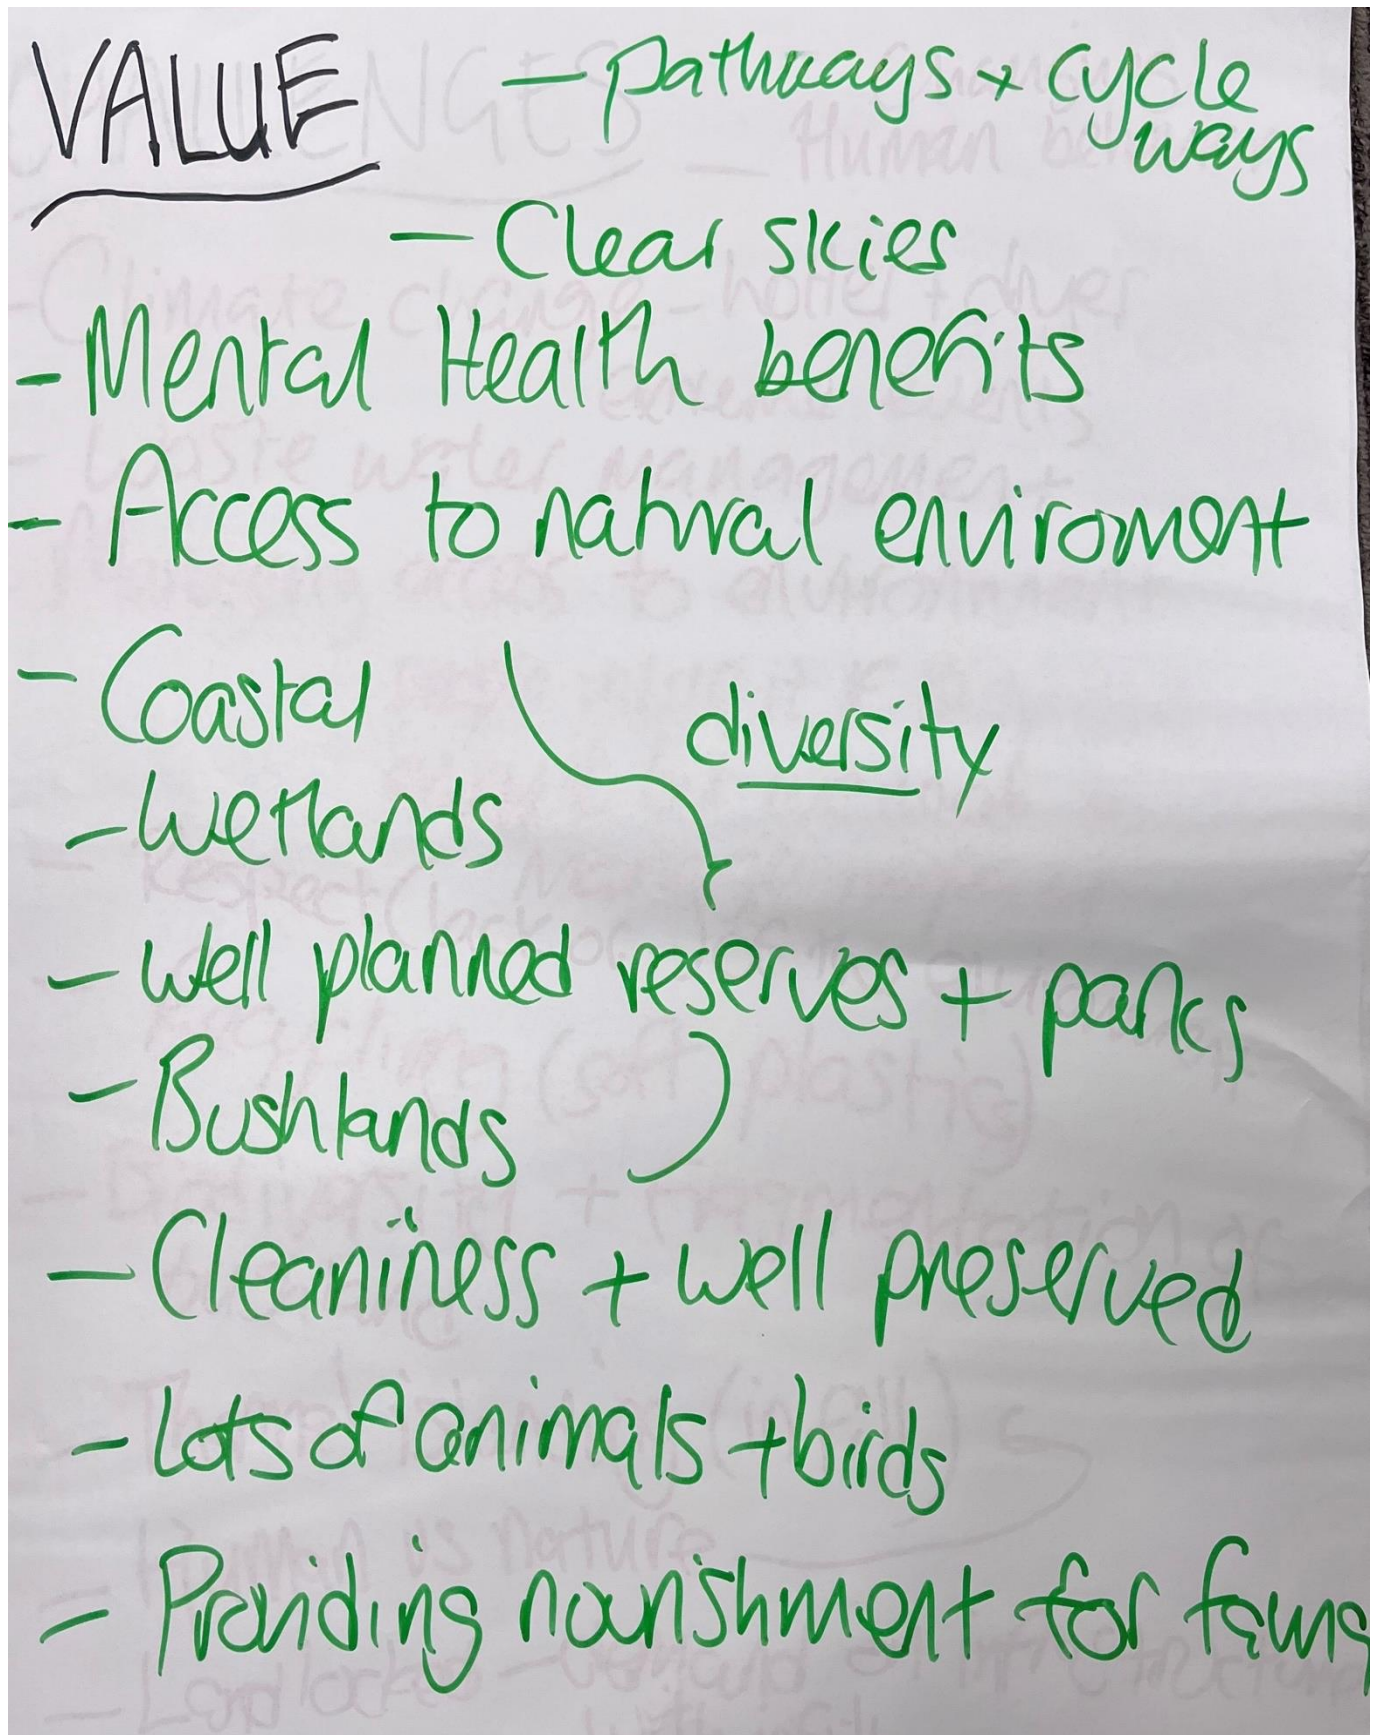 VALUE - pathways + cycle
ways
- Clear skies
- Mental Health benefits
- Access to natural enviroment
- Coastal
diversity
- Wetlands
- Well planned reserves + parks
- Bushlands
- Cleaniness + well preserved
- Lots of animals + birds
- Providing nourishment for fauna